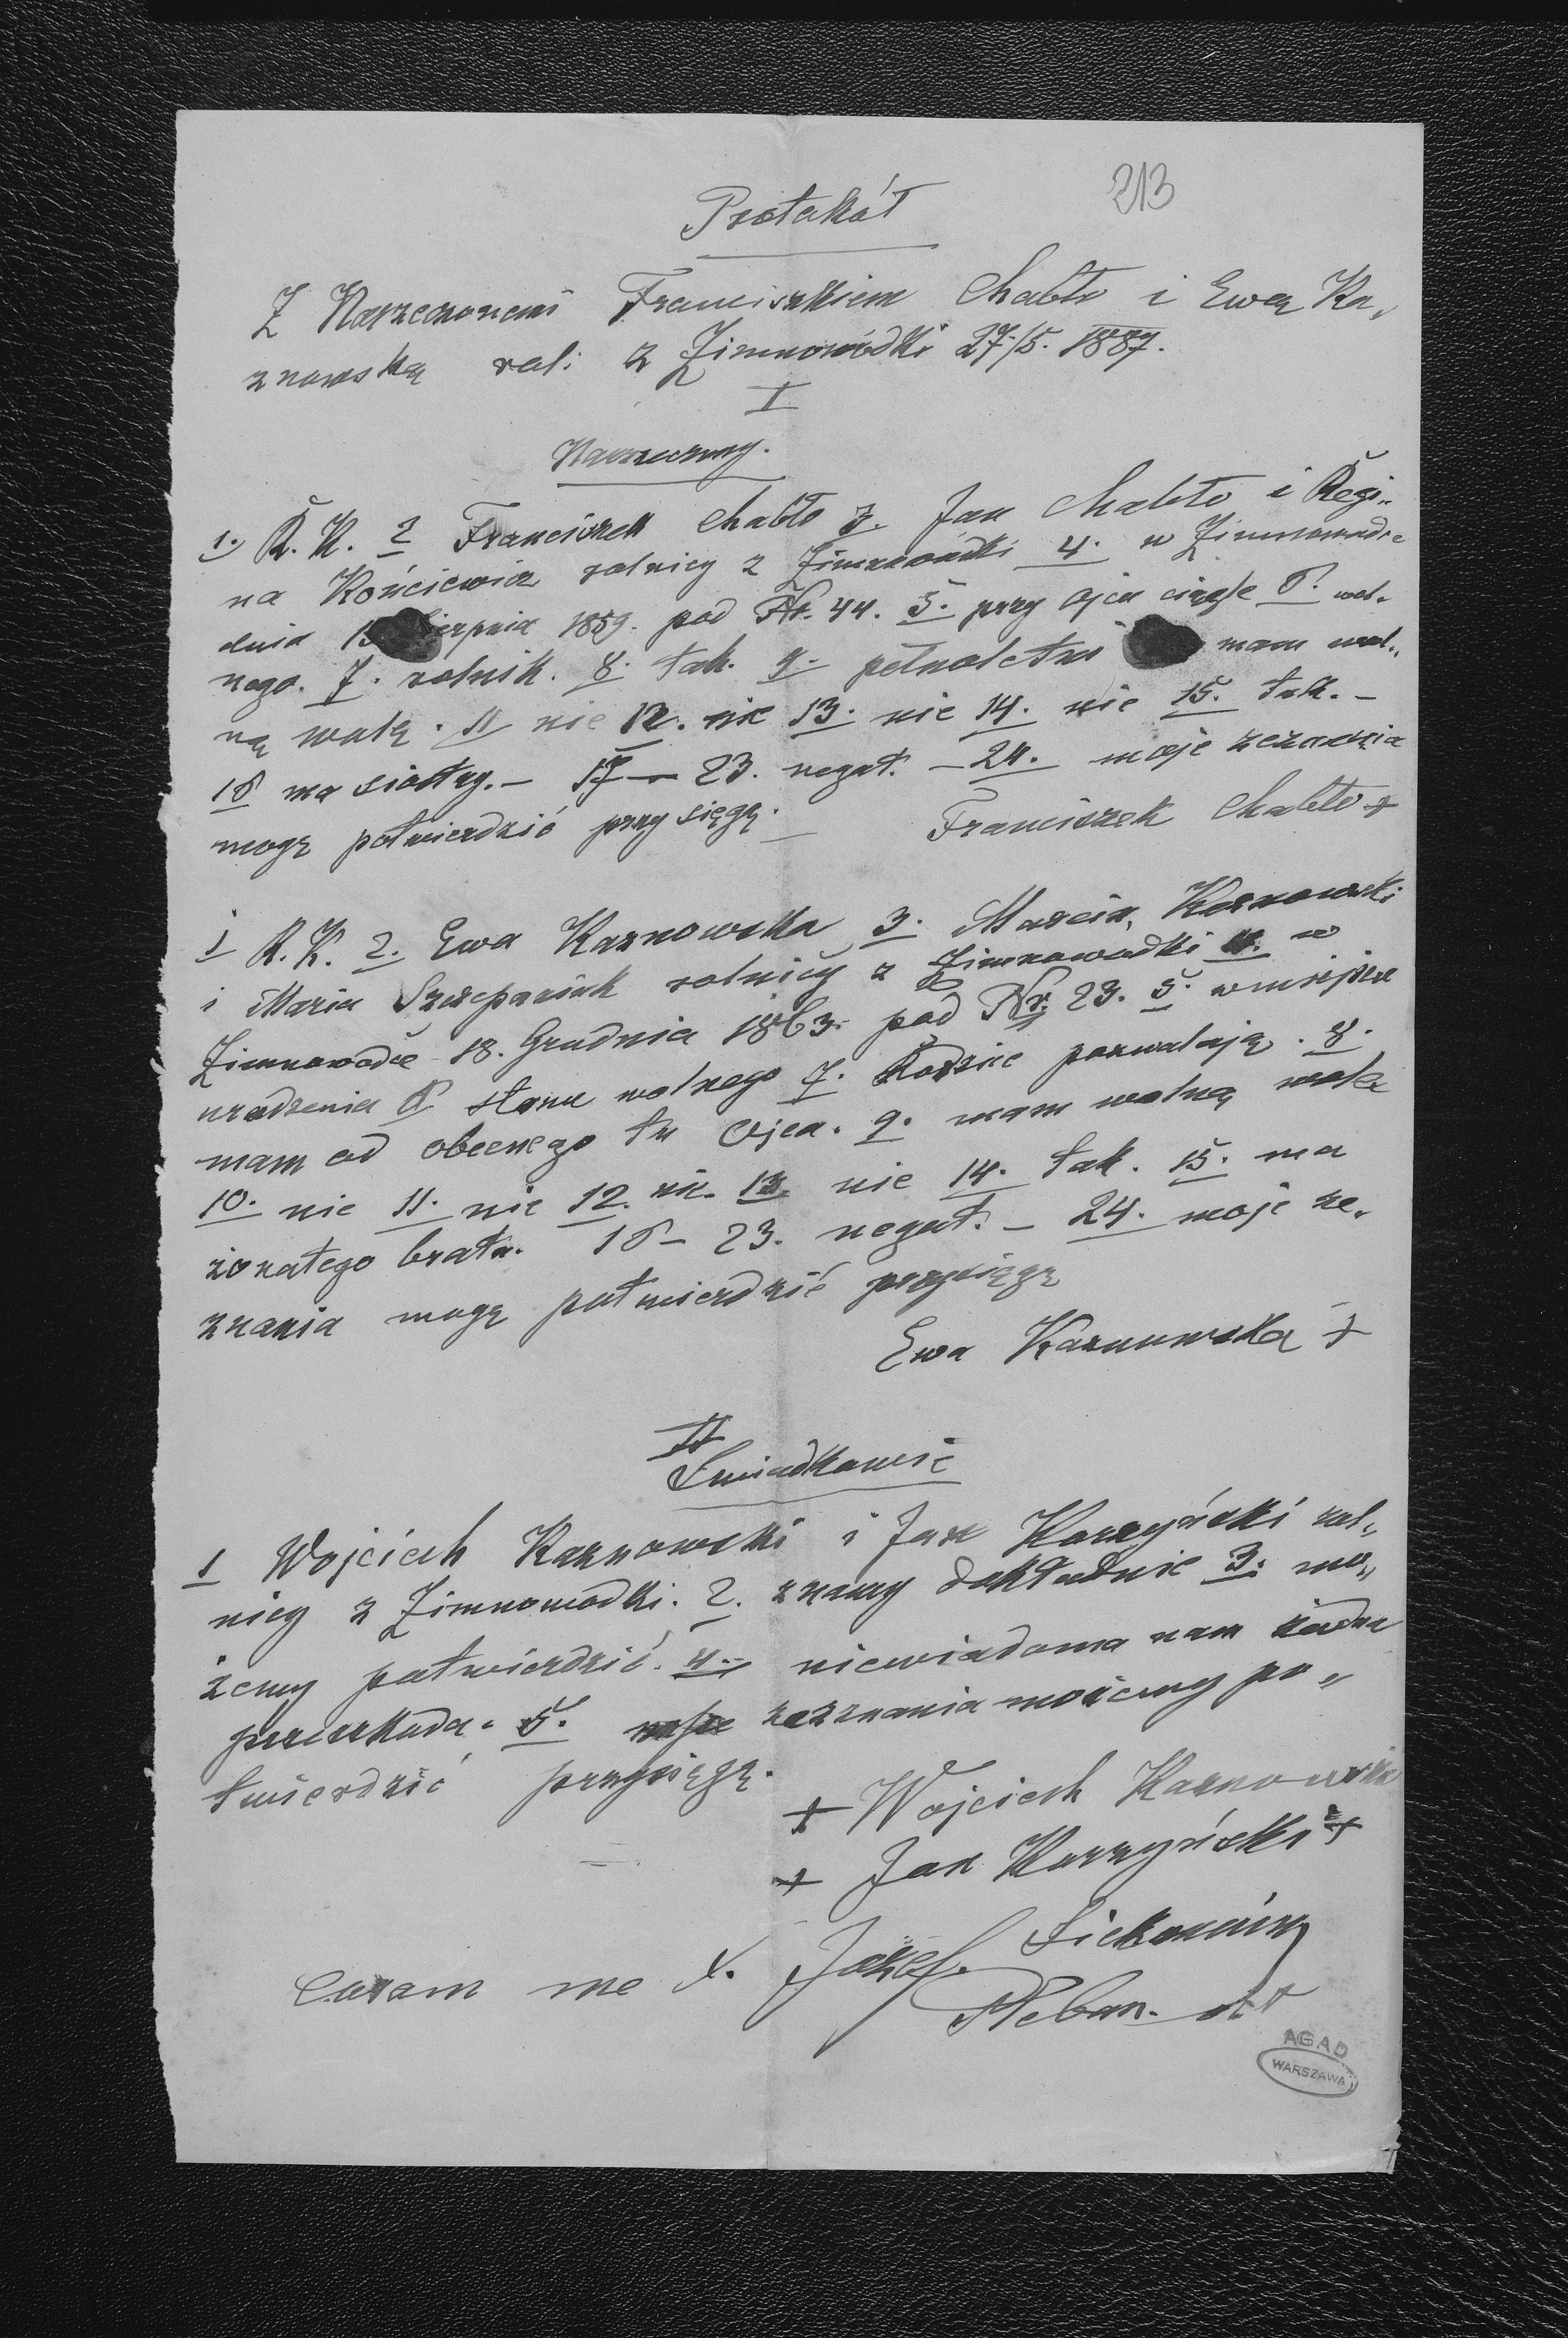 213
Protokół
Z Narzeczonemi Franciszkiem Chabło i Ewą Ka„
znowską rol: z Zimnowódki 27/5. 1887.
I
Narzeczony.
1. R. K. 2 Franciszek Chabło 3. Jan Chabło i Regi„
na Kościewicz rolnicy z Zimnowódki 4. w Zimnowodce
dnia 15 Sierpnia 1859. pod Nr. 44. 5. przy ojcu ciągle 6. wol„
nego. 7. rolnik. 8. tak. 9. pełnoletni mam wol„
ną wolę. 11 nie 12. nie 13. nie 14. nie 15. tak. –
16 ma siostry. – 17 – 23. negat. – 24. moje zeznania
mogę potwierdzić przysięgą.
Franciszek Chabło +
1 R. K. 2. Ewa Kaznowska 3. Marcin Kaznowski
i Maria Szczepaniuk rolnicy z Zimnowodki 4. w
Zimnowodce 18. Grudnia 1863. pod Nr. 23. 5. w miejscu
urodzenia 6 stanu wolnego 7. Rodzice pozwalają. 8.
mam od obecnego tu Ojca. 9. mam wolną wolę
10. nie 11. nie 12. nie. 13. nie 14. tak. 15. ma
żonatego brata. 16 – 23. negat. – 24. moje ze„
znania mogę potwierdzić przysięgą
Ewa Kaznowska +
II
Świadkowie
1 Wojciech Kaznowski i Jan Korzyński rol„
nicy z Zimnowodki. 2. znamy dokładnie 3. mo„
żemy potwierdzić. 4. niewiadoma nam żadna
przeszkoda. 5. nasze zeznania możemy po„
twierdzić przysięgą.
+ Wojciech Kaznowski
+ Jan Korzyński +
Coram me X. Józef
Pleban
AGAD
WARSZAWA